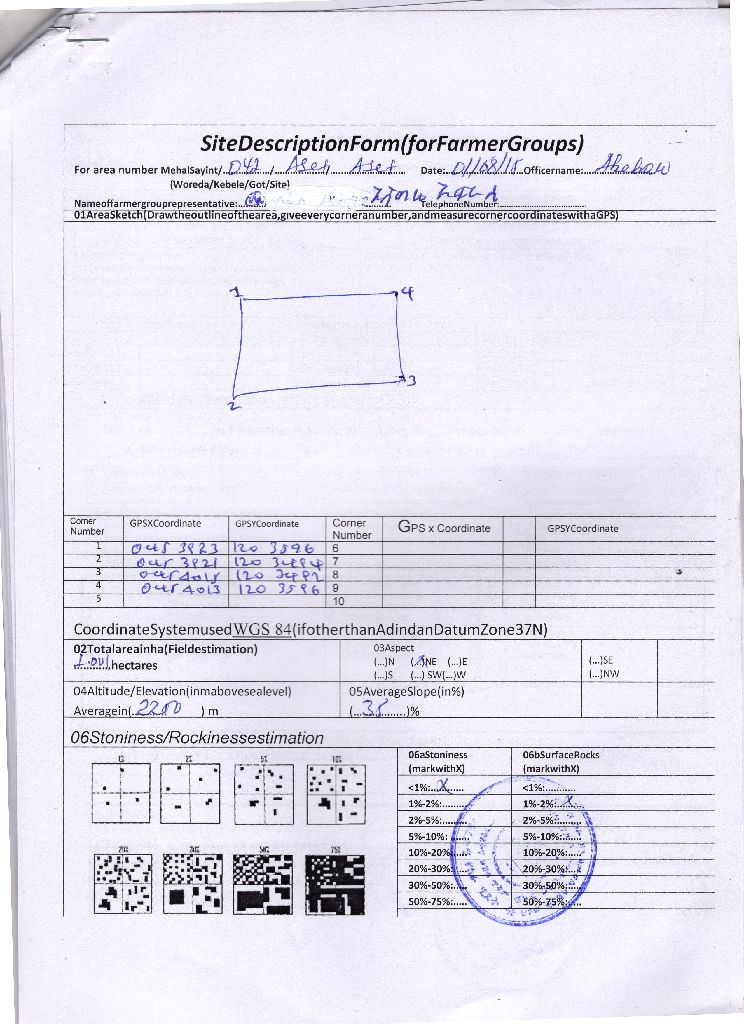 SiteDescriptionForm(forFarmerGroups)
For area number MehalSayint/ 042 / Asef / Asef Date: 01/08/15 Officername:
(Woreda/Kebele/Got/Site)
Nameoffarmergrouprepresentative: TelephoneNumber:
01AreaSketch(Drawtheoutlineofthearea,giveeverycorneranumber,andmeasurecornercoordinateswithaGPS)
1 4
2 3
Corner Number GPSXCoordinate GPSYCoordinate Corner Number GPS x Coordinate GPSYCoordinate
1 045 3923 120 3596 6
2 045 3921 120 3484 7
3 045 4015 120 3482 8
4 045 4013 120 3596 9
5 10
CoordinateSystemusedWGS 84(ifotherthanAdindanDatumZone37N)
02Totalareainha(Fieldestimation) 03Aspect
hectares (...)N (X)NE (...)E (...)SE
(...)S (...) SW(...)W (...)NW
04Altitude/Elevation(inmabovesealevel) 05AverageSlope(in%)
Averagein( 2200 ) m (...35...)%
06Stoniness/Rockinessestimation
1% 2% 5% 10%
20% 30% 50% 75%
06aStoniness 06bSurfaceRocks
(markwithX) (markwithX)
<1%:..X...... <1%:...........
1%-2%:......... 1%-2%:...X....
2%-5%:......... 2%-5%:.........
5%-10%: ....... 5%-10%:.......
10%-20%:..... 10%-20%:.....
20%-30%:..... 20%-30%:.....
30%-50%:..... 30%-50%:.....
50%-75%:..... 50%-75%:.....